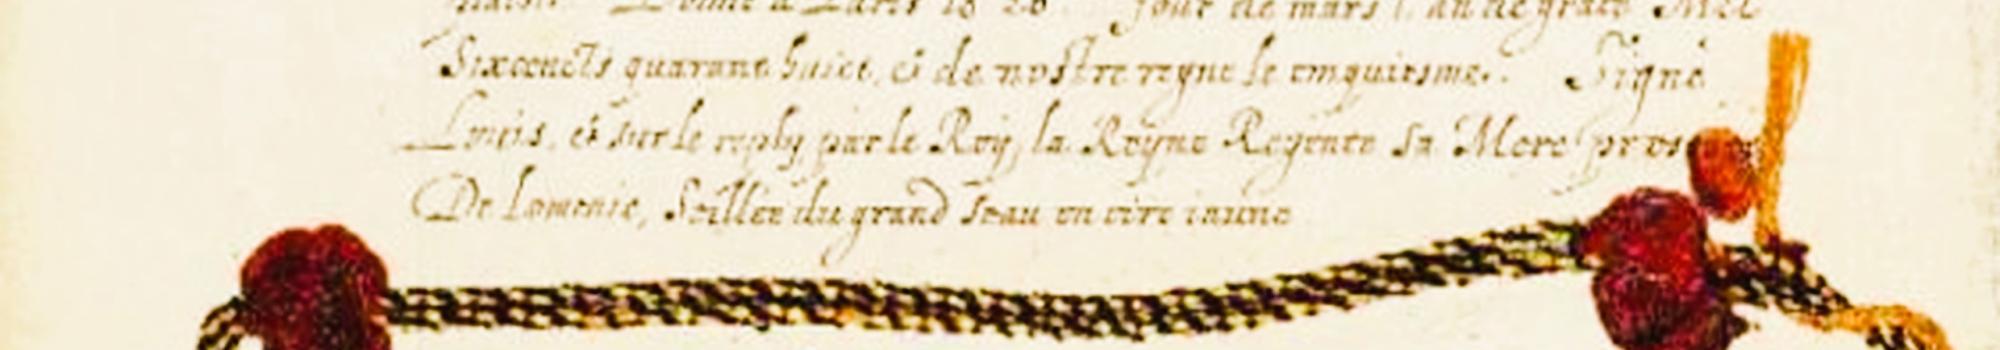 plaisir. Donné a Paris le 28e jour de mars l'an de grace Mil
Sixcencts quarante huict, et de nostre regne le cinquiesme. Signé
Louis, et sur le reply par le Roy, la Royne Regente sa Mere
De Lomenie, Scillee du grand Seau en cire iaune